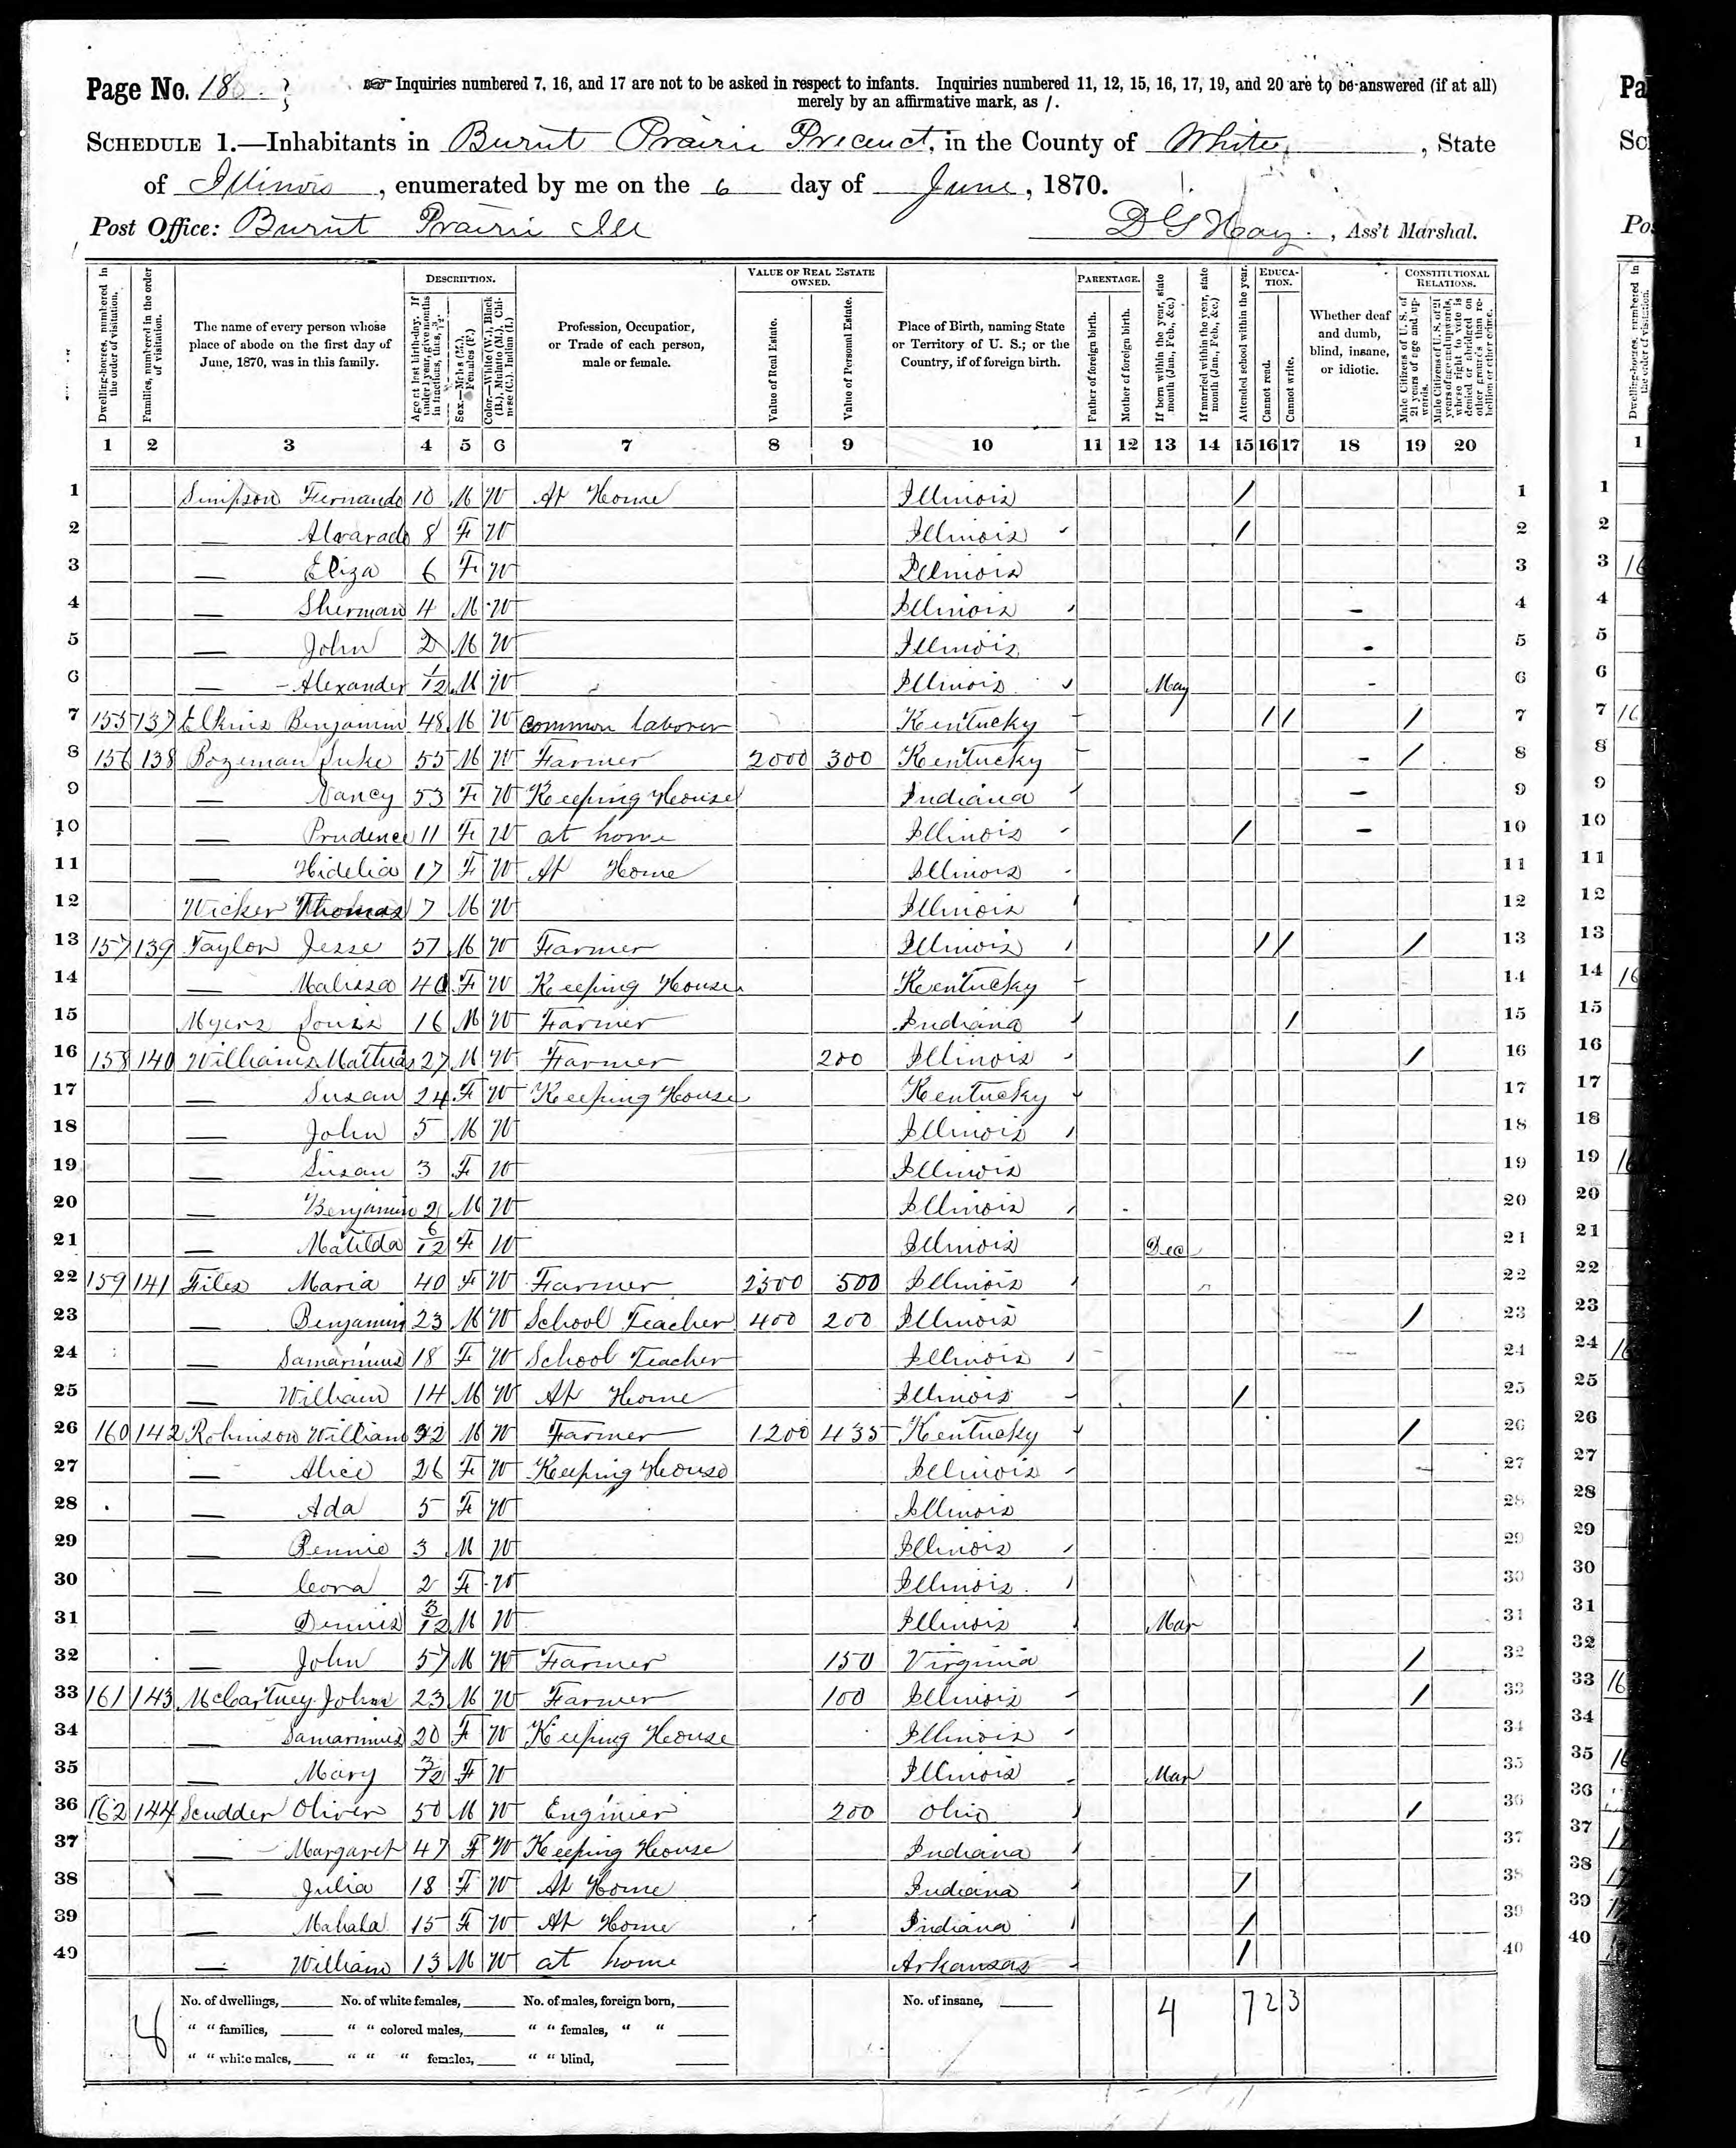 Page No. 18
Inquiries numbered 7, 16, and 17 are not to be asked in respect to infants. Inquiries numbered 11, 12, 15, 16, 17, 19, and 20 are to be answered (if at all)
merely by an affirmative mark, as /.
SCHEDULE 1.—Inhabitants in Burnt Prairie Precinct, in the County of White, State
of Illinois, enumerated by me on the 6 day of June, 1870.
Post Office: Burnt Prairie Ill D G Hay, Ass't Marshal.
DESCRIPTION. VALUE OF REAL ESTATE OWNED. PARENTAGE. EDUCATION. CONSTITUTIONAL RELATIONS.
Dwelling-houses, numbered in the order of visitation.
Families, numbered in the order of visitation.
The name of every person whose place of abode on the first day of June, 1870, was in this family.
Age at last birth-day. If under 1 year, give months in fractions, thus, 3/12.
Sex.—Males (M.), Females (F.)
Color.—White (W.), Black (B.), Mulatto (M.), Chinese (C.), Indian (I.)
Profession, Occupation, or Trade of each person, male or female.
Value of Real Estate.
Value of Personal Estate.
Place of Birth, naming State or Territory of U. S.; or the Country, if of foreign birth.
Father of foreign birth.
Mother of foreign birth.
If born within the year, state month (Jan., Feb., &c.)
If married within the year, state month (Jan., Feb., &c.)
Attended school within the year.
Cannot read.
Cannot write.
Whether deaf and dumb, blind, insane, or idiotic.
Male Citizens of U. S. of 21 years of age and upwards.
Male Citizens of U. S. of 21 years of age and upwards, whose right to vote is denied or abridged on other grounds than rebellion or other crime.
1 2 3 4 5 6 7 8 9 10 11 12 13 14 15 16 17 18 19 20
1 Simpson Fernando 10 M W At Home Illinois / 1
2 — Alvarado 8 F W Illinois / 2
3 — Eliza 6 F W Illinois 3
4 — Sherman 4 M W Illinois 4
5 — John 2 M W Illinois 5
6 — Alexander 1/12 M W Illinois May 6
7 155 137 Elkins Benjamin 48 M W Common laborer Kentucky / / / 7
8 156 138 Bozeman Luke 55 M W Farmer 2000 300 Kentucky / 8
9 — Nancy 53 F W Keeping House Indiana 9
10 — Prudence 11 F W at home Illinois / 10
11 — Hidelia 17 F W At Home Illinois 11
12 Wicker Thomas 7 M W Illinois 12
13 157 139 Taylor Jesse 57 M W Farmer Illinois / / / 13
14 — Malissa 40 F W Keeping House Kentucky 14
15 Myers Louis 16 M W Farmer Indiana / 15
16 158 140 Williams Mathias 27 M W Farmer 200 Illinois / 16
17 — Susan 24 F W Keeping House Kentucky 17
18 — John 5 M W Illinois 18
19 — Susan 3 F W Illinois 19
20 — Benjamin 2 M W Illinois 20
21 — Matilda 6/12 F W Illinois Dec 21
22 159 141 Files Maria 40 F W Farmer 2500 500 Illinois 22
23 — Benjamin 23 M W School Teacher 400 200 Illinois / 23
24 — Samarimus 18 F W School Teacher Illinois 24
25 — William 14 M W At Home Illinois / 25
26 160 142 Robinson William 32 M W Farmer 1200 435 Kentucky / 26
27 — Alice 26 F W Keeping House Illinois 27
28 — Ada 5 F W Illinois 28
29 — Bennie 3 M W Illinois 29
30 — Cora 2 F W Illinois 30
31 — Dennis 3/12 M W Illinois Mar 31
32 — John 57 M W Farmer 150 Virginia / 32
33 161 143 McCartney John 23 M W Farmer 100 Illinois / 33
34 — Samarimus 20 F W Keeping House Illinois 34
35 — Mary 3/12 F W Illinois Mar 35
36 162 144 Scudder Oliver 50 M W Enginier 200 Ohio / 36
37 — Margaret 47 F W Keeping House Indiana 37
38 — Julia 18 F W At Home Indiana / 38
39 — Mahala 15 F W At Home Indiana / 39
40 — William 13 M W at home Arkansas / 40
No. of dwellings, No. of white females, No. of males, foreign born, No. of insane, 4 7 2 3
8 " " families, " " colored males, " " females, " "
" " white males, " " " females, " " blind,